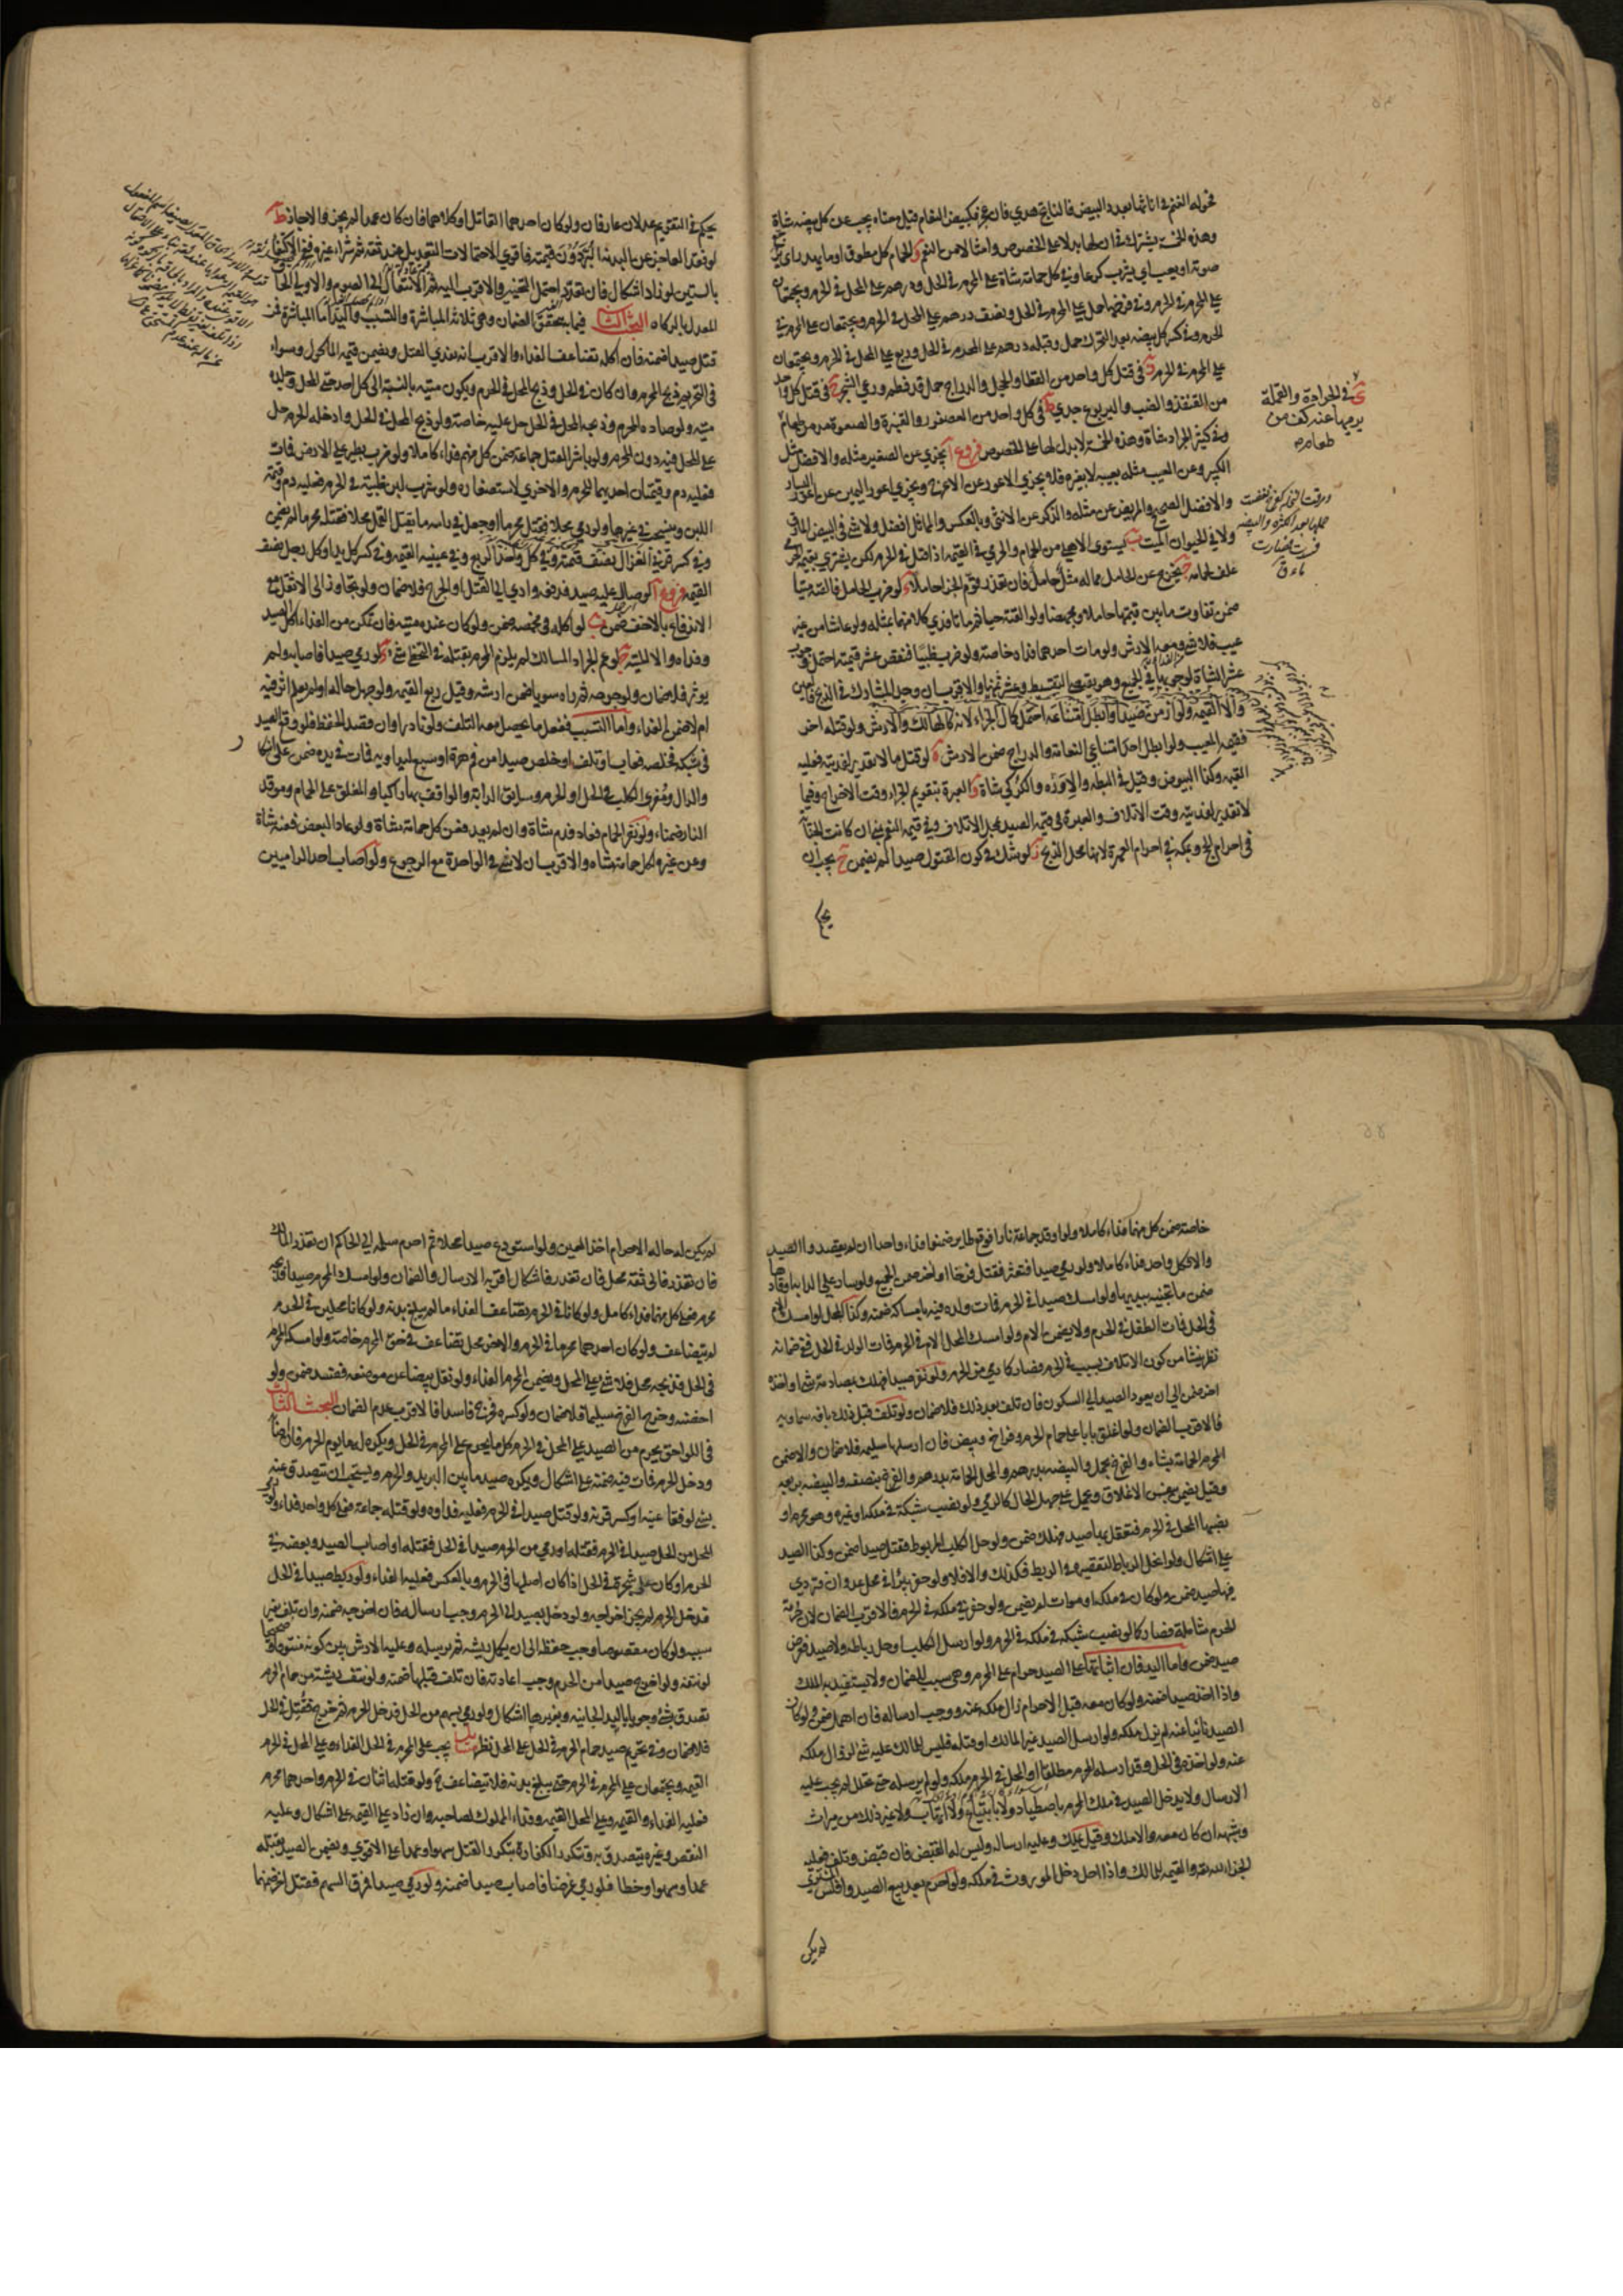 فحولة الغنم في اناثها بعدد البيض فالناتج هدي فان عجز فكبيض النعام قيل معناه يجب عن كل بيضة شاة
وهذه الخمسة يشترك في ان لها بدلا على الخصوص وامثالا من النعم و الحمام كل مطوق او ما يهدر اي يرجع
صوته او يعب اي يشرب كرعا وفي كل حمامة شاة على المحرم في الحل ودرهم على المحل في الحرم ويجتمعان
على المحرم في الحرم وفي فرخها حمل على المحرم في الحل ونصف درهم على المحل في الحرم ويجتمعان على المحرم في
الحرم وفي كسر كل بيضة بعد التحرك حمل وقبله درهم على المحرم في الحل وربع على المحل في الحرم ويجتمعان
على المحرم في الحرم ز في قتل كل واحد من القطا والحجل والدراج حمل قد فطم ورعى الشجر ح في قتل كل واحد
من القنفذ والضب واليربوع جدي ط في كل واحد من العصفور والقبرة والصعوة مد من طعام
وفي كثير الجراد شاة وهذه الخمسة لا بدل لها على الخصوص فروع ا يجزي عن الصغير مثله والافضل مثل
الكبير وعن المعيب مثله بعيبه لا بغيره فلا يجزي الاعور عن الاعرج ويجزي اعور اليمين عن اعور اليسار
والافضل الصحيح والمريض عن مثله والذكر عن الانثى وبالعكس والمماثل افضل ولا شئ في البيض المارق
ولا في الحيوان الميت ب يستوي الاهلي من الحمام والحرمي في القيمة اذا قتل في الحرم لكن يشتري بقيمة الحرمي
علف لحمامه ج يخرج عن الحامل مماله مثل حاملا فان تعذر قوم الجزاء حاملا د لو ضرب الحامل فالقته ميتا
ضمن تفاوت ما بين قيمتها حاملا ومجهضا ولو القته حيا ثم ماتا فدي كلا منهما بمثله ولو عاشا من غير
عيب فلا شئ ومعه الارش ولو مات احدهما فداه خاصة ولو ضرب ظبيا فنقص عشر قيمته احتمل وجوب
عشر الشاة لوجوبها في الجميع وهو يقتضي التقسيط وعشر ثمنها والاقرب ان وجد المشارك في الذبح فالعين
والا القيمة ولو ازمن صيدا وابطل امتناعه احتمل كمال الجزاء لانه كالهالك والارش ولو قتله اخر
فقيمة المعيب ولو ابطل احد امتناعي النعامة والدراج ضمن الارش ه لو قتل ما لا تقدير لفديته فعليه
القيمة وكذا البيوض وقيل في البطة والاوزة والكركي شاة و العبرة بتقويم الجزاء وقت الاخراج وفيما
لا تقدير لفديته وقت الاتلاف والعبرة في قيمة الصيد بمحل الاتلاف وفي قيمة النعم بمنى ان كانت الجناية
في احرام الحج وبمكة في احرام العمرة لانها محل الذبح ز لو شك في كون المقتول صيدا لم يضمن ح يجب ان
يحكم
ى في الجرادة والقملة
يرميها عنه كف من
طعام
يحكم في التقويم عدلان عارفان ولو كان احدهما القاتل او كلاهما فان كان عمدا لم يجز والا جاز ط
لو فقد العاجز عن البدنة البر دون قيمته فاقوى الاحتمالات التعديل عند ثقة ثم شراء غيره ثم الاكتفاء
بالستين لو زاد اشكال فان تعدد احتمل التخيير والاقرب اليه ثم الانتقال الى الصوم والاولى الحاق
المعدل بالزكاه البحث الثاني فيما به يتحقق الضمان وهي ثلاثة المباشرة والتسبيب واليد اما المباشرة فمن
قتل صيدا ضمنه فان اكله تضاعف الفداء والاقرب انه يفدي القتل ويضمن قيمة الماكول وسواء
في التحريم ذبح المحرم وان كان في الحل وذبح المحل في الحرم ويكون ميتة بالنسبة الى كل احد حتى المحل وجلده
ميتة ولو صاده المحرم وذبحه المحل في الحل حل عليه خاصة ولو ذبح المحل في الحل وادخله الحرم حل
على المحل فيه دون المحرم ولو باشر القتل جماعة ضمن كل منهم فداء كاملا ولو ضرب بطير على الارض فمات
فعليه دم وقيمتان احديهما للحرم والاخرى لاستصغاره ولو شرب لبن ظبية في الحرم فعليه دم وقيمة
اللبن وينسحب في غيرها ولو رمى محلا فقتل محرما او جعل في راسه ما يقتل القمل محلا فقتله محرما لم يضمن
وفي كسر قرني الغزال نصف قيمته وفي كل واحد الربع وفي عينيه القيمة وفي كسر كل يد او كل رجل نصف
القيمة فروع ا لو صال عليه صيد فدفعه وادى الى القتل او الجرح فلا ضمان ولو تجاوز الى الاثقل مع
الاندفاع بالاخف ضمن ب لو اكله في مخمصة ضمن ولو كان عنده ميتة فان تمكن من الفداء اكل الصيد
وفداه والا الميتة ج لو عم الجراد المسالك لم يلزم المحرم بقتله في التخطي شئ د لو رمى صيدا فاصابه ولم
يوثر فلا ضمان ولو جرحه ثم راه سويا ضمن ارشه وقيل ربع القيمة ولو جهل حاله او لم يعلم اثر فيه
ام لا ضمن الفداء واما التسبيب ففعل ما يحصل معه التلف ولو نادرا وان قصد الحفظ فلو وقع الصيد
في شبكة فخلصه فعاب او تلف او خلص صيدا من فم هرة او سبع ليداويه فمات في يده ضمن على اشكال
والدال ومغري الكلب في الحل او الحرم وسائق الدابة والواقف بها راكبا والمغلق على الحمام وموقد
النار ضمناء ولو نفر الحمام فعاد فدم شاة وان لم يعد فعن كل حمامة شاة ولو عاد البعض فعنه شاة
وعن غيره لكل حمامة شاة والاقرب ان لا شئ في الواحدة مع الرجوع ولو اصاب احد الراميين
خاصة ضمن كل منهما فداء كاملا ولو اوقد جماعة نارا فوقع طاير ضمنوا فداء واحدا ان لم يقصدوا الصيد
والا فكل واحد فداء كاملا ولو رمى صيدا فتعثر فقتل فرخا او اخر ضمن الجميع ولو سار على الدابة او قادها
ضمن ما تجنيه بيديها ولو امسك صيدا في الحرم فمات ولده فيه بامساكه ضمنه وكذا المحل لو امسك الام
في الحل فمات الطفل في الحرم ولا يضمن الام ولو امسك المحل الام في الحرم فمات الولد في الحل ففي ضمانه
نظر ينشا من كون الاتلاف بسبب في الحرم فصار كما رمى من الحرم ولو نفر صيدا فهلك بمصادمة شئ او اخذه
اخر ضمن الى ان يعود الصيد الى السكون فان تلف بعد ذلك فلا ضمان ولو تلف قبل ذلك بافة سماوية
فالاقرب الضمان ولو اغلق بابا على حمام الحرم وفراخ وبيض فان ارسلها سليمة فلا ضمان والا ضمن
المحرم الحمامة بشاة والفرخ بحمل والبيضة بدرهم والمحل الحمامة بدرهم والفرخ بنصفه والبيضة بربعه
وقيل يضمن بنفس الاغلاق ويحمل على جهل الحال كالرمي ولو نصب شبكة في ملكه او غيره وهو محرم او
نصبها المحل في الحرم فتعقل بها صيد فهلك ضمن ولو حل الكلب المربوط فقتل صيدا ضمن وكذا الصيد
على اشكال ولو انحل الرباط لتقصيره في الربط فكذلك والا فلا ولو حفر بئرا في محل عدوان فتردى
فيها صيد ضمن ولو كان في ملكه او موات لم يضمن ولو حفر في ملكه في الحرم فالاقرب الضمان لان حرمة
الحرم شاملة فصار كما لو نصب شبكة في ملكه في الحرم ولو ارسل الكلب او حل رباطه ولا صيد فعرض
صيد ضمن واما اليد فان اثباتها على الصيد حرام على المحرم وهي سبب للضمان ولا يستفيد به الملك
واذا اخذ صيدا ضمنه ولو كان معه قبل الاحرام زال ملكه عنه ووجب ارساله فان اهمل ضمن ولو كان
الصيد نائيا عنه لم يزل ملكه ولو ارسل الصيد غير المالك او قتله فليس للمالك عليه شئ لزوال ملكه
عنه ولو اخذه في الحل وقد ارسله المحرم مطلقا او المحل في الحرم ملكه ولو لم يرسله حتى تحلل لم يجب عليه
الارسال ولا يدخل الصيد في ملك المحرم باصطياد ولا بابتياع ولا اتهاب ولا غير ذلك من ميراث
وشبهه ان كان معه والا ملك وقيل يملك وعليه ارساله وليس له القبض فان قبض وتلف فعليه
الجزاء لله تعالى والقيمة للمالك واذا احل دخل الموروث في ملكه ولو احرم بعد بيع الصيد وافلس المشتري
لم يكن
لم يكن له حالة الاحرام اخذ العين ولو استودع صيدا محلا ثم احرم سلمه الى الحاكم ان تعذر المالك
فان تعذر فالى ثقة محل فان تعذر فاشكال اقربه الارسال والضمان ولو امسك المحرم صيدا فذبحه
محرم فعلى كل منهما فداء كامل ولو كانا في الحرم تضاعف الفداء ما لم يبلغ بدنة ولو كانا محلين في الحرم
لم يتضاعف ولو كان احدهما محرما في الحرم والاخر محل تضاعف في حق المحرم خاصة ولو امسكه المحرم
في الحل فذبحه محل فلا شئ على المحل ويضمن المحرم الفداء ولو نقل بيضا عن موضعه ففسد ضمن ولو
احضنه وخرج الفرخ سليما فلا ضمان ولو كسره فخرج فاسدا فالاقرب عدم الضمان البحث الثالث
في اللواحق يحرم من الصيد على المحل في الحرم كل ما يحرم على المحرم في الحل ويكره له ما يوم الحرم فان اصابه
ودخل الحرم فمات فيه ضمنه على اشكال ويكره صيد ما بين البريد والحرم ويستحب ان يتصدق عنه
بشئ لو فقا عينه او كسر قرنه ولو قتل صيدا في الحرم فعليه فداوه ولو قتله جماعة فعلى كل واحد فداء ولو رمى
المحل من الحل صيدا في الحرم فقتله او رمى من الحرم صيدا في الحل فقتله او اصاب الصيد وبعضه في
الحرم او كان على شجرة في الحل اذا كان اصلها في الحرم وبالعكس فعليه الفداء ولو ربط صيدا في الحل
فدخل الحرم لم يجز اخراجه ولو دخل بصيد الى الحرم وجب ارساله فان اخرجه ضمنه وان تلف بغير
سببه ولو كان مقصوصا وجب حفظه الى ان يكمل ريشه ثم يرسله وعليه الارش بين كونه منتوفا وصحيحا
لو نتفه ولو اخرج صيدا من الحرم وجب اعادته فان تلف قبلها ضمنه ولو نتف ريشة من حمام الحرم
تصدق بشئ وجوبا باليد الجانية وبغيرها اشكال ولو رمى بسهم من الحل فدخل الحرم ثم خرج فقتل في الحل
فلا ضمان وفي تحريم صيد حمام الحرم في الحل على المحل نظر يجب على المحرم في الحل الفداء وعلى المحل في الحرم
القيمة ويجتمعان على المحرم في الحرم حتى يبلغ بدنة فلا يتضاعف ولو قتله اثنان في الحرم واحدهما محرم
فعليه الفداء والقيمة وعلى المحل القيمة وفداء المملوك لصاحبه وان زاد على القيمة على اشكال وعليه
النقص وغيره يتصدق به وتتكرر الكفارة بتكرر القتل سهوا وعمدا على الاقوى ويضمن الصيد بقتله
عمدا وسهوا وخطا فلو رمى غرضا فاصاب صيدا ضمنه ولو رمى صيدا فمرق السهم فقتل اخر ضمنهما